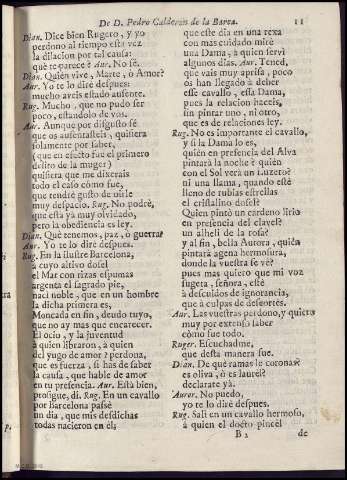 De D. Pedro Calderón de la Barca. 11
Dian. Dice bien Rugero, y yo
perdono al tiempo esta vez
la dilacion por tal causa:
què te parece? Aur. No sè.
Dian. Quièn vive, Marte, ò Amor?
Aur. Yo te lo dirè despues:
mucho aveis estado ausente.
Rug. Mucho, que no pudo ser
poco, estandolo de vos.
Aur. Aunque por disgusto sè
que os ausentasteis, quisiera
solamente por saber,
(que en efecto fue el primero
delito de la muger)
quisiera que me dixerais
todo el caso còmo fue,
que tendrè gusto de oirle
muy despacio. Rug. No podrè,
que està yà muy olvidado,
pero la obediencia es ley.
Dian. Què tenemos, paz, ò guerra?
Aur. Yo te lo dirè despues.
Rug. En la ilustre Barcelona,
à cuyo altivo dosel
el Mar con rizas espumas
argenta el sagrado pie,
nacì noble, que en un hombre
la dicha primera es,
Moncada en fin, deudo tuyo,
que no ay mas que encarecer.
El ocio, y la juventud
à quien libraron, à quien
del yugo de amor? perdona,
que es fuerza, si has de saber
la causa, que hable de amor
en tu presencia. Aur. Està bien,
prosigue, di. Rug. En un cavallo
por Barcelona passè
un dia, que mis desdichas
todas nacieron en èl;
que este dia en una rexa
con mas cuidado mirè
una Dama, à quien servì
algunos dias. Aur. Tened,
que vais muy aprisa, poco
os han llegado à deber
esse cavallo, y essa Dama,
pues la relacion haceis,
sin pintar uno, ni otro,
que es de relaciones ley.
Rug. No es importante el cavallo,
y si la Dama lo es,
quièn en presencia del Alva
pintarà la noche? quièn
con el Sol verà un Luzero?
ni una llama, quando estè
lleno de rubias estrellas
el cristalino dosel?
Quien pintò un cardeno lirio
en presencia del clavel?
un alhelì de la rosa?
y al fin, bella Aurora, quièn
pintarà agena hermosura,
donde la vuestra se vè?
pues mas quiero que mi voz
sugeta, señora, estè
à descuidos de ignorancia,
que à culpas de descortès.
Aur. Las vuestras perdono, y quiero
muy por extenso saber
còmo fue todo.
Ruger. Escuchadme,
que desta manera fue.
Dian. De què ramas le coronas?
es oliva, ò es laurel?
declarate yà.
Auror. No puedo,
yo te lo dirè despues.
Rug. Salì en un cavallo hermoso,
à quien el docto pincel
B 2 de